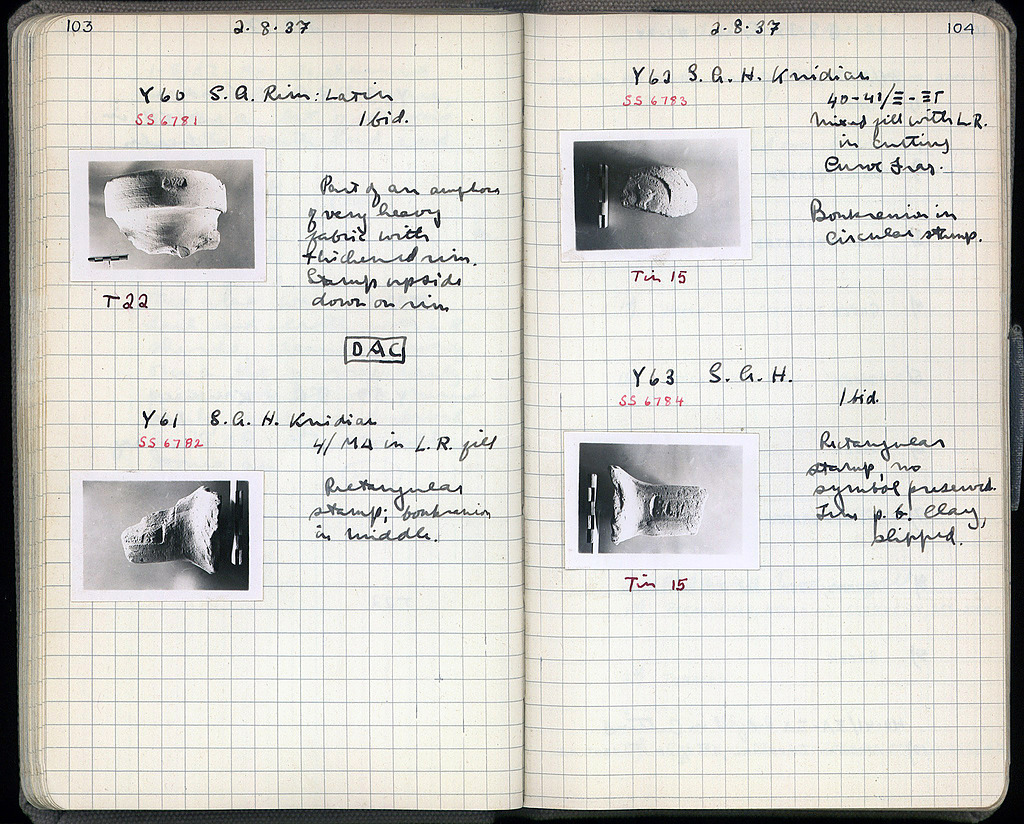 103
2.8.37
Y60 S.A. Rim: Latin
SS 6781
Ibid.
Part of an amphora
of very heavy
fabric with
thickened rim.
Stamp upside
down on rim
T 22
DAC
Y61 S.A.H. Knidian
SS 6782
4/MΔ in L.R. fill
Rectangular
stamp; boukranion
in middle.
2.8.37
104
Y62 S.A.H. Knidian
SS 6783
40-41/Ξ-ΞΓ
Mixed fill with L.R.
in cutting
Curve Frag.
Boukranion in
circular stamp.
Tin 15
Y63 S.A.H.
SS 6784
Ibid.
Rectangular
stamp, no
symbol preserved.
Fine p. b. clay,
slipped.
Tin 15